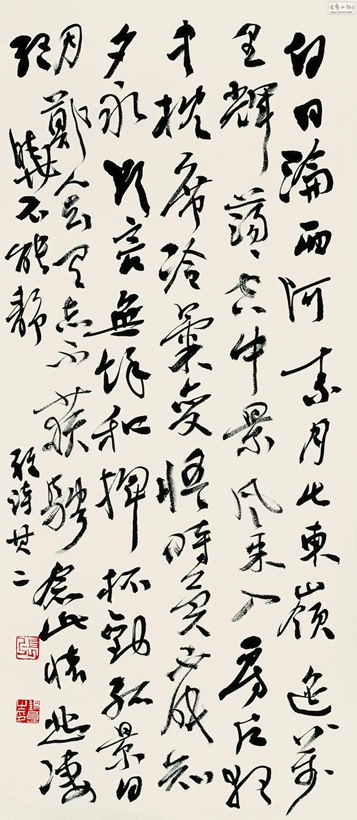 白日淪西阿素月出東嶺遙〻萬
里輝蕩〻空中景風來入房戶夜
中枕席冷氣變悟時易不眠知
夕永欲言無餘和揮杯勸孤景日
月擲人去有志不獲騁念此懷悲悽
終曉不能靜
雜詩其二